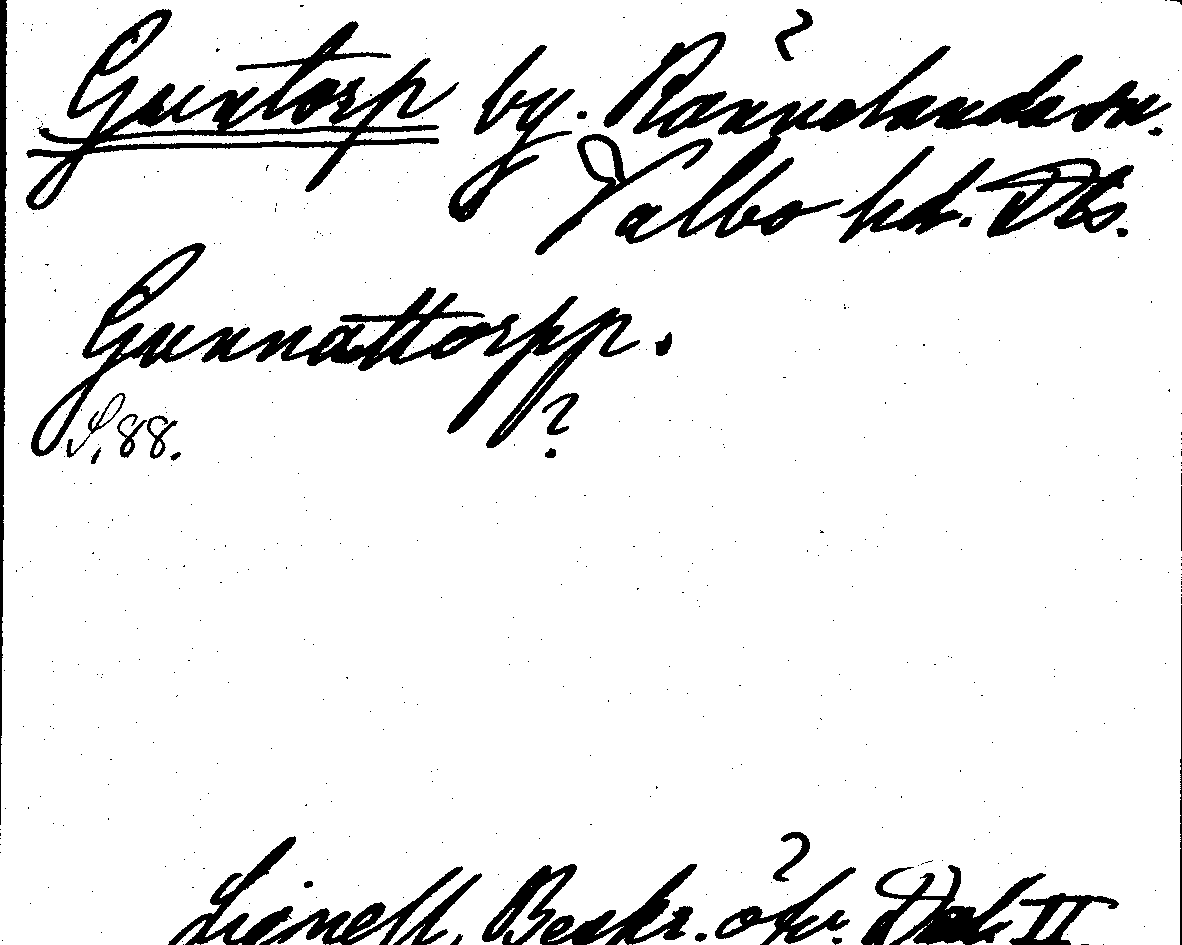 Guntorp by. Rännelanda sn.
Valbo hd. Dls.
Gunnattorpp.
?
S. 88.
Lignell, Beskr. öfv. Dal. II